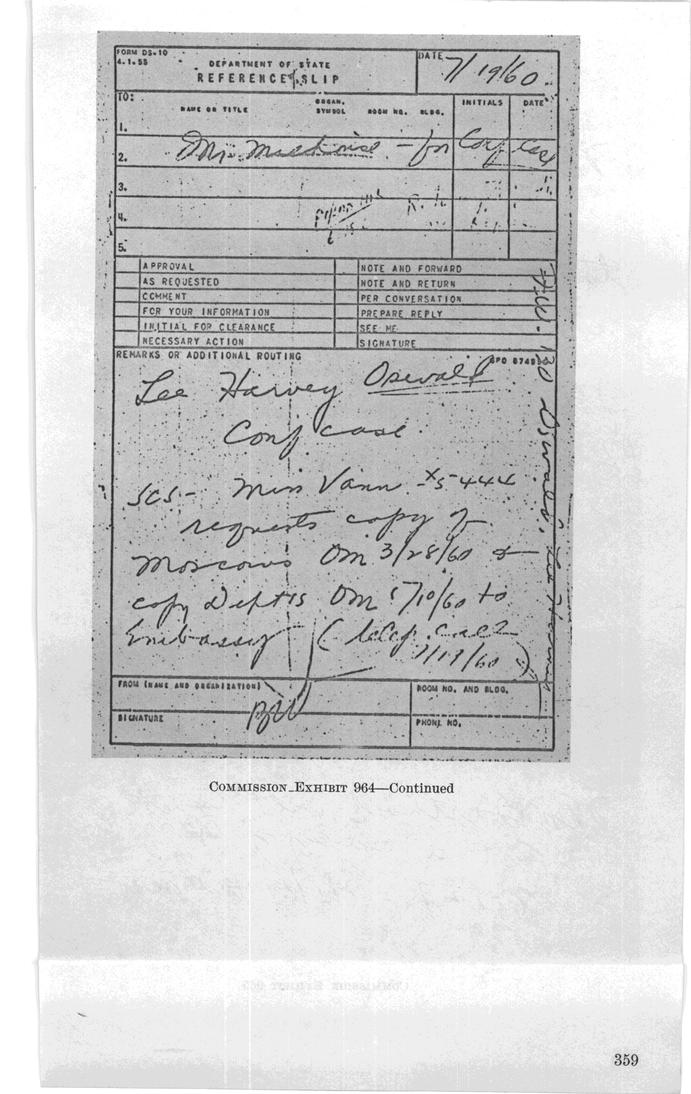 FORM DS-10
4.1.55
DEPARTMENT OF STATE
REFERENCE SLIP
DATE
7/19/60
TO:
NAME OR TITLE ORGAN. SYMBOL ROOM NO. BLDG. INITIALS DATE
1.
2. Mr. - for Conf
3.
4.
5.
APPROVAL NOTE AND FORWARD
AS REQUESTED NOTE AND RETURN
COMMENT PER CONVERSATION
FOR YOUR INFORMATION PREPARE REPLY
INITIAL FOR CLEARANCE SEE ME
NECESSARY ACTION SIGNATURE
REMARKS OR ADDITIONAL ROUTING GPO
Lee Harvey Oswald
Conf case
SCS - Miss Vann x5444
requests copy of
Moscows OM 3/28/60 &
copy Dept's OM 5/10/60 to
Embassy (telep. call
7/19/60)
130 Oswald, Lee Harvey
FROM (NAME AND ORGANIZATION) ROOM NO. AND BLDG.
SIGNATURE PHONE NO.
COMMISSION EXHIBIT 964—Continued
359